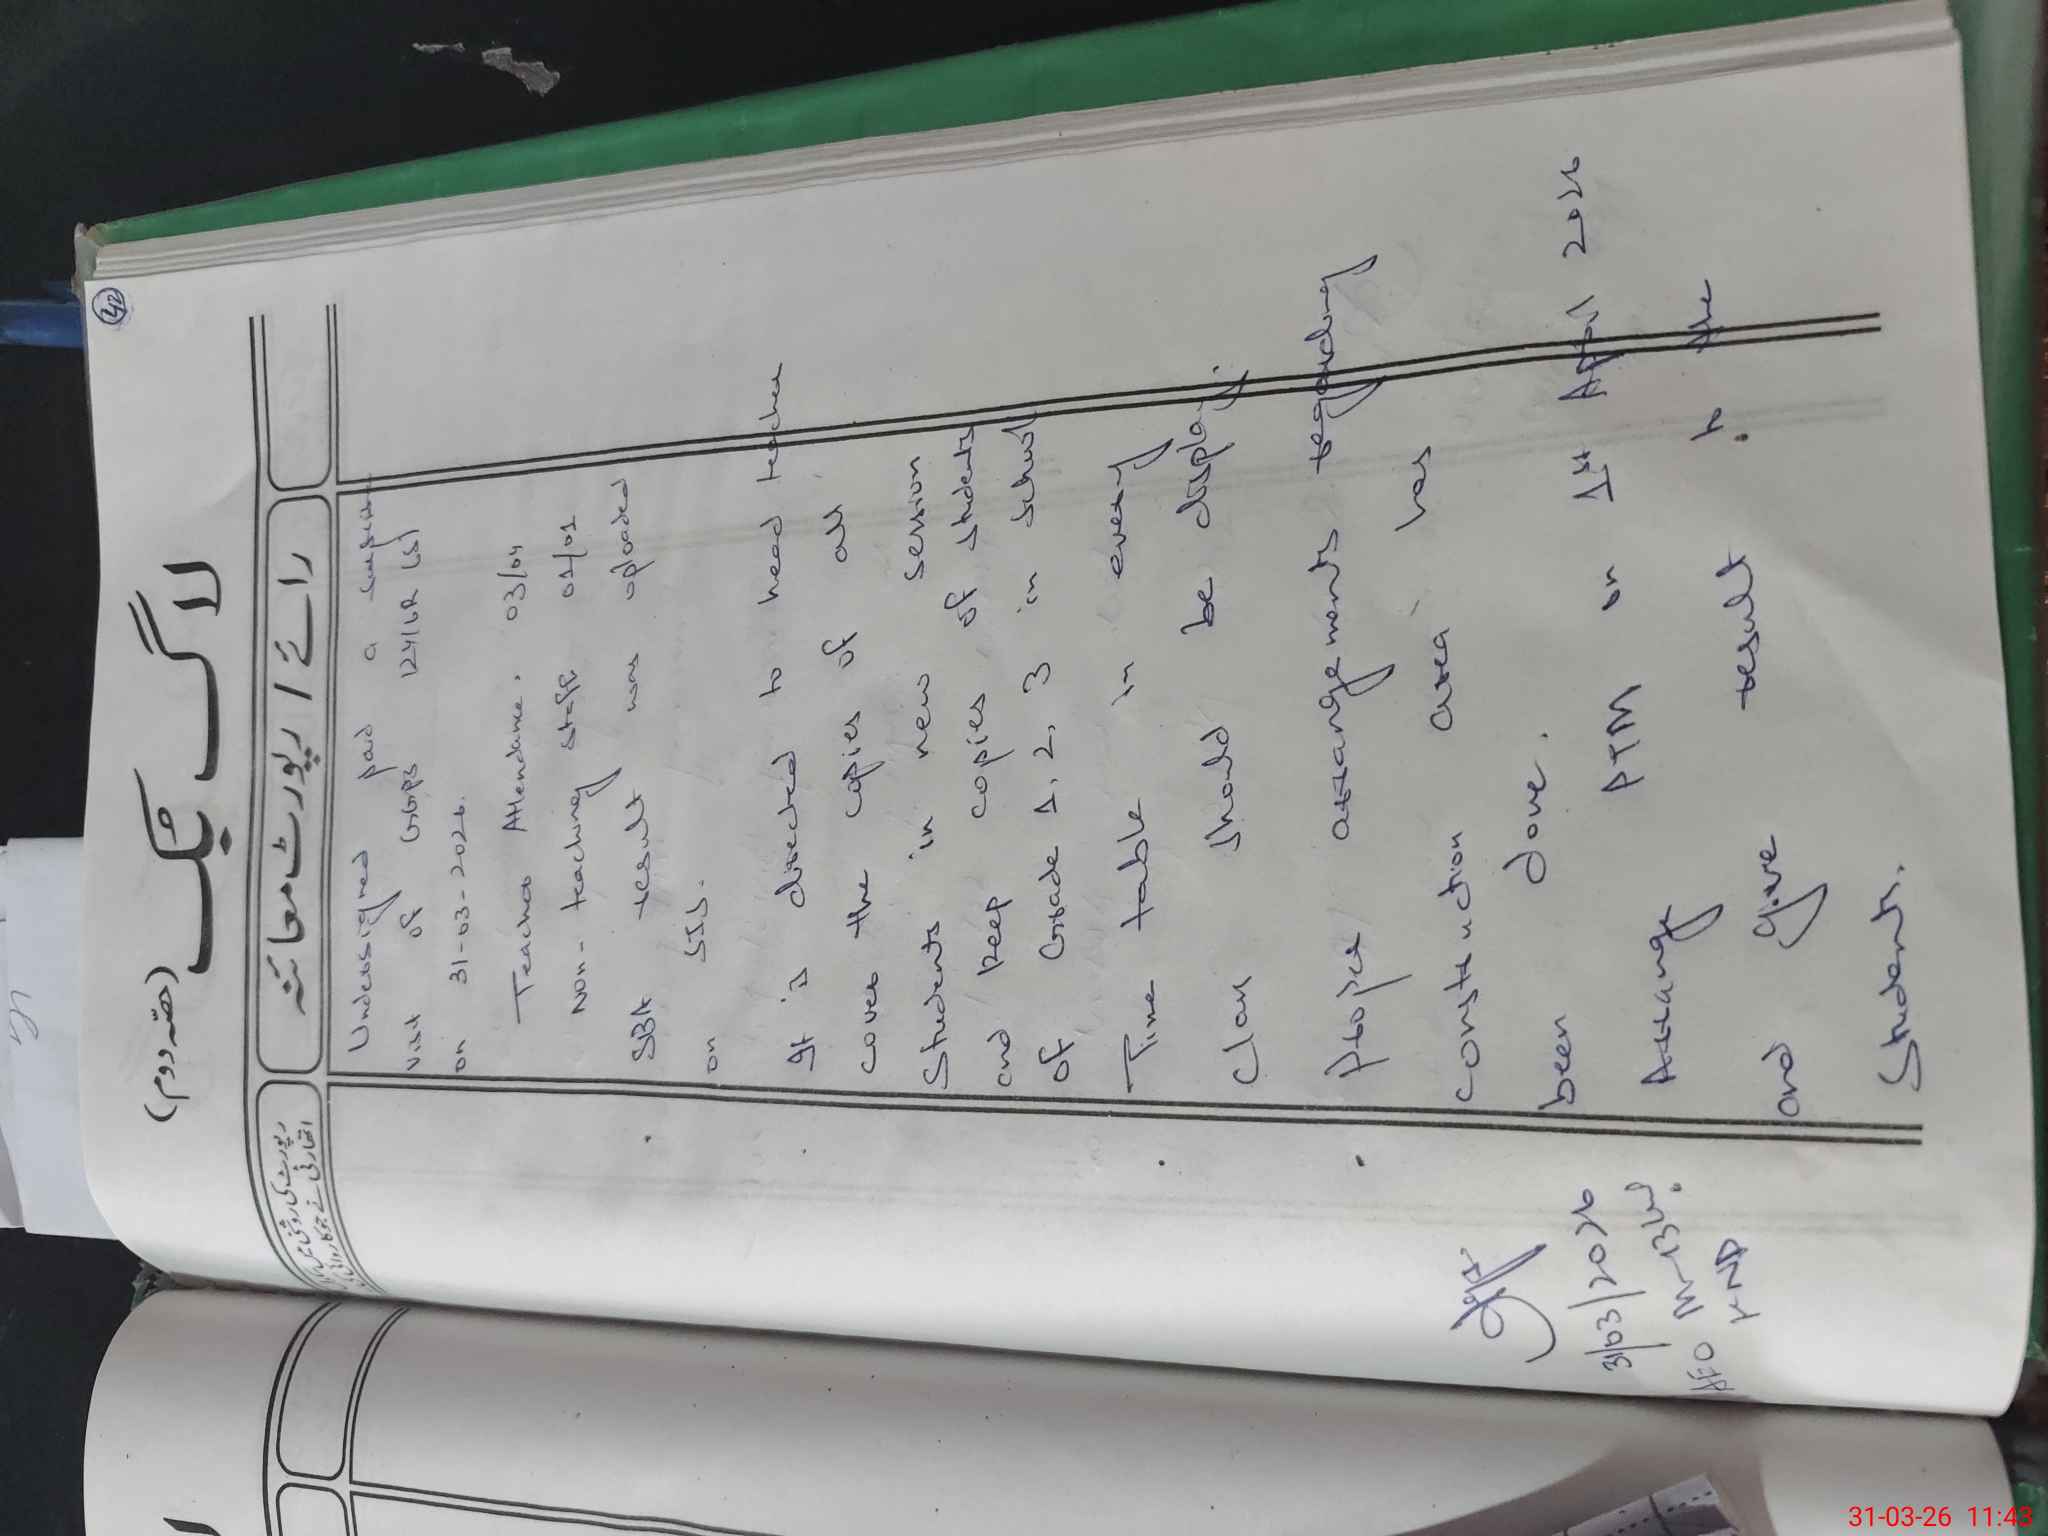 42
لاگ بک (حصّہ دوم)
رائے / رپورٹ معائنہ
رپورٹ کی روشنی میں
اتھارٹی نے جو کاروائی کی
Undersigned paid a surprise
visit of GGPS 124/6R (S)
on 31-03-2026.
Teacher Attendance. 03/04
Non-teaching staff 01/01
SBA result was uploaded
on SIS.
It is directed to head teacher
cover the copies of all
Students in new session
and keep copies of students
of Grade 1, 2, 3 in school
Time table in every
Class should be display.
Proper arrangements regarding
construction area has
been done.
Arrange PTM on 1st April 2026
and give result to the
Students.
31/03/2026
AEO
31-03-26 11:43